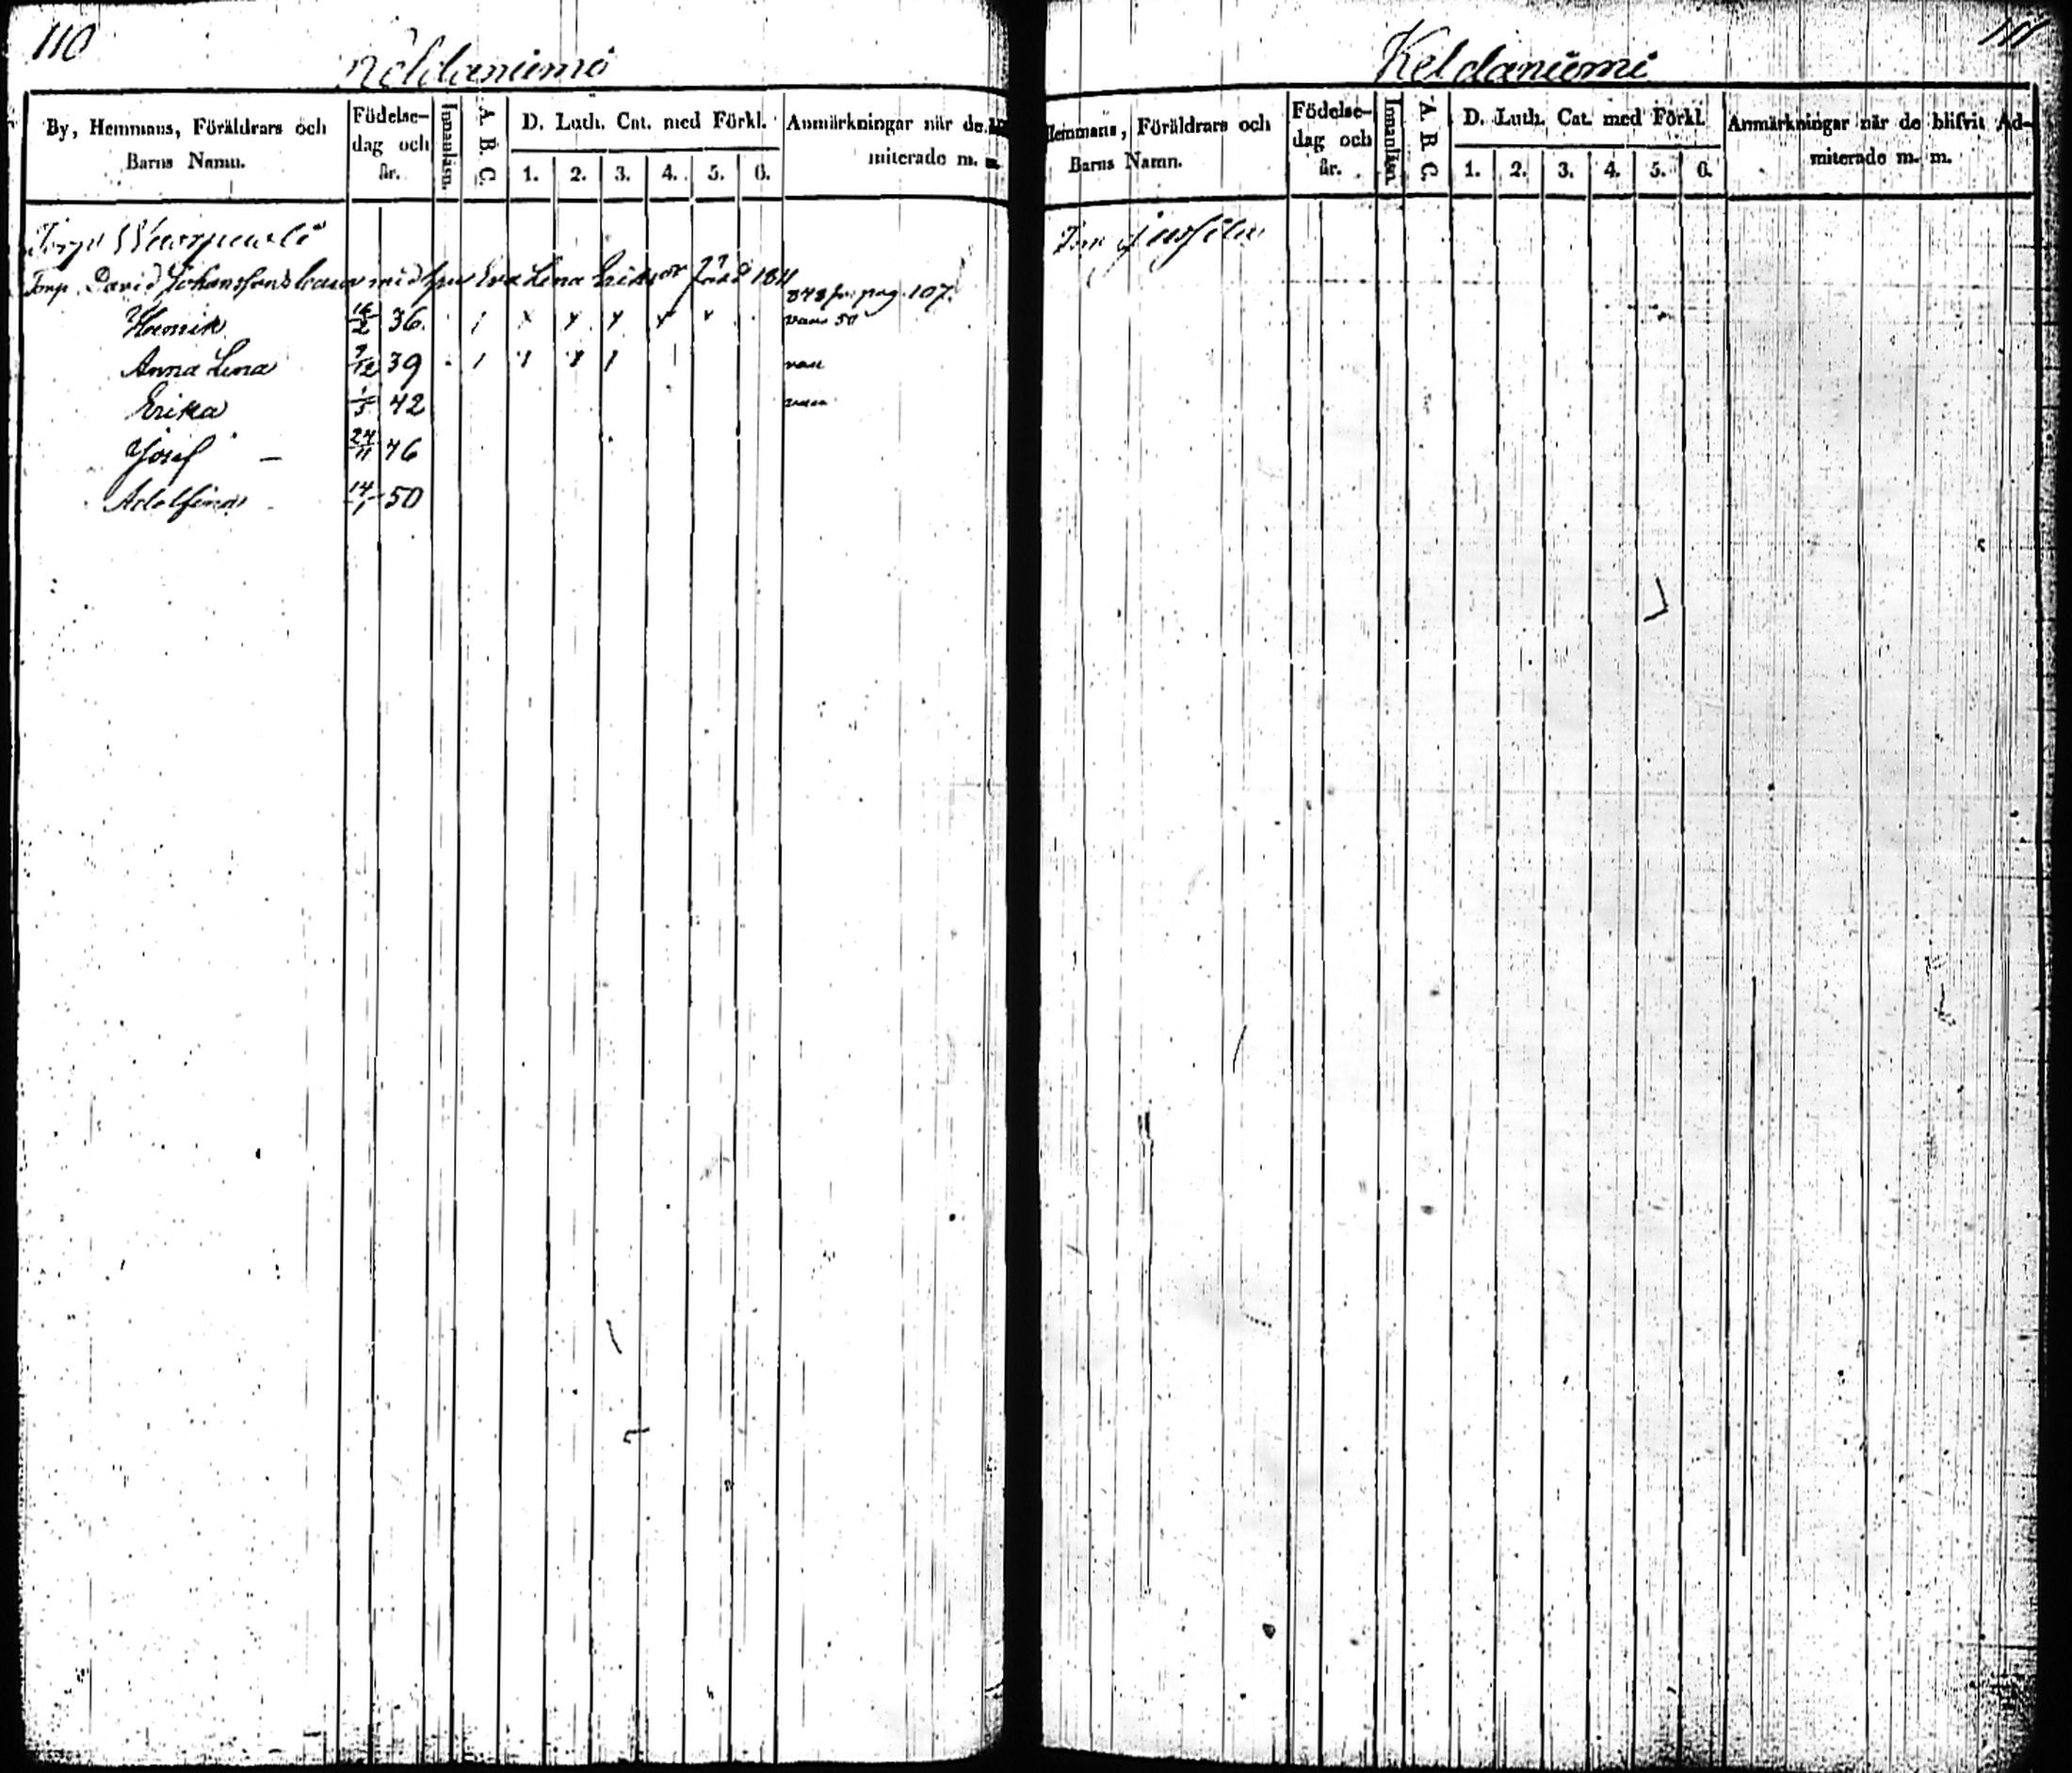 110
Keldaniemi
By, Hemmans, Föräldrars och
Barns Namn.
Födelse-
dag och
år.
Innanläsn.
A. B. C.
D. Luth. Cat. med Förkl.
1. 2. 3. 4. 5. 6.
Anmärkningar när de
miterade m.
Torp
Torp. David Johanssons barn med hu Eva Lena
fr. pag. 107.
Henrik 16/2 36.
Anna Lena 9/12 39
Erika 1/5 42
Josef 24/11 46
Adolfina 14/1 50
111
Keldaniemi
Hemmans, Föräldrars och
Barns Namn.
Födelse-
dag och
år.
Innanläsn.
A. B. C.
D. Luth. Cat. med Förkl.
1. 2. 3. 4. 5. 6.
Anmärkningar när de blifvit Ad-
miterade m. m.